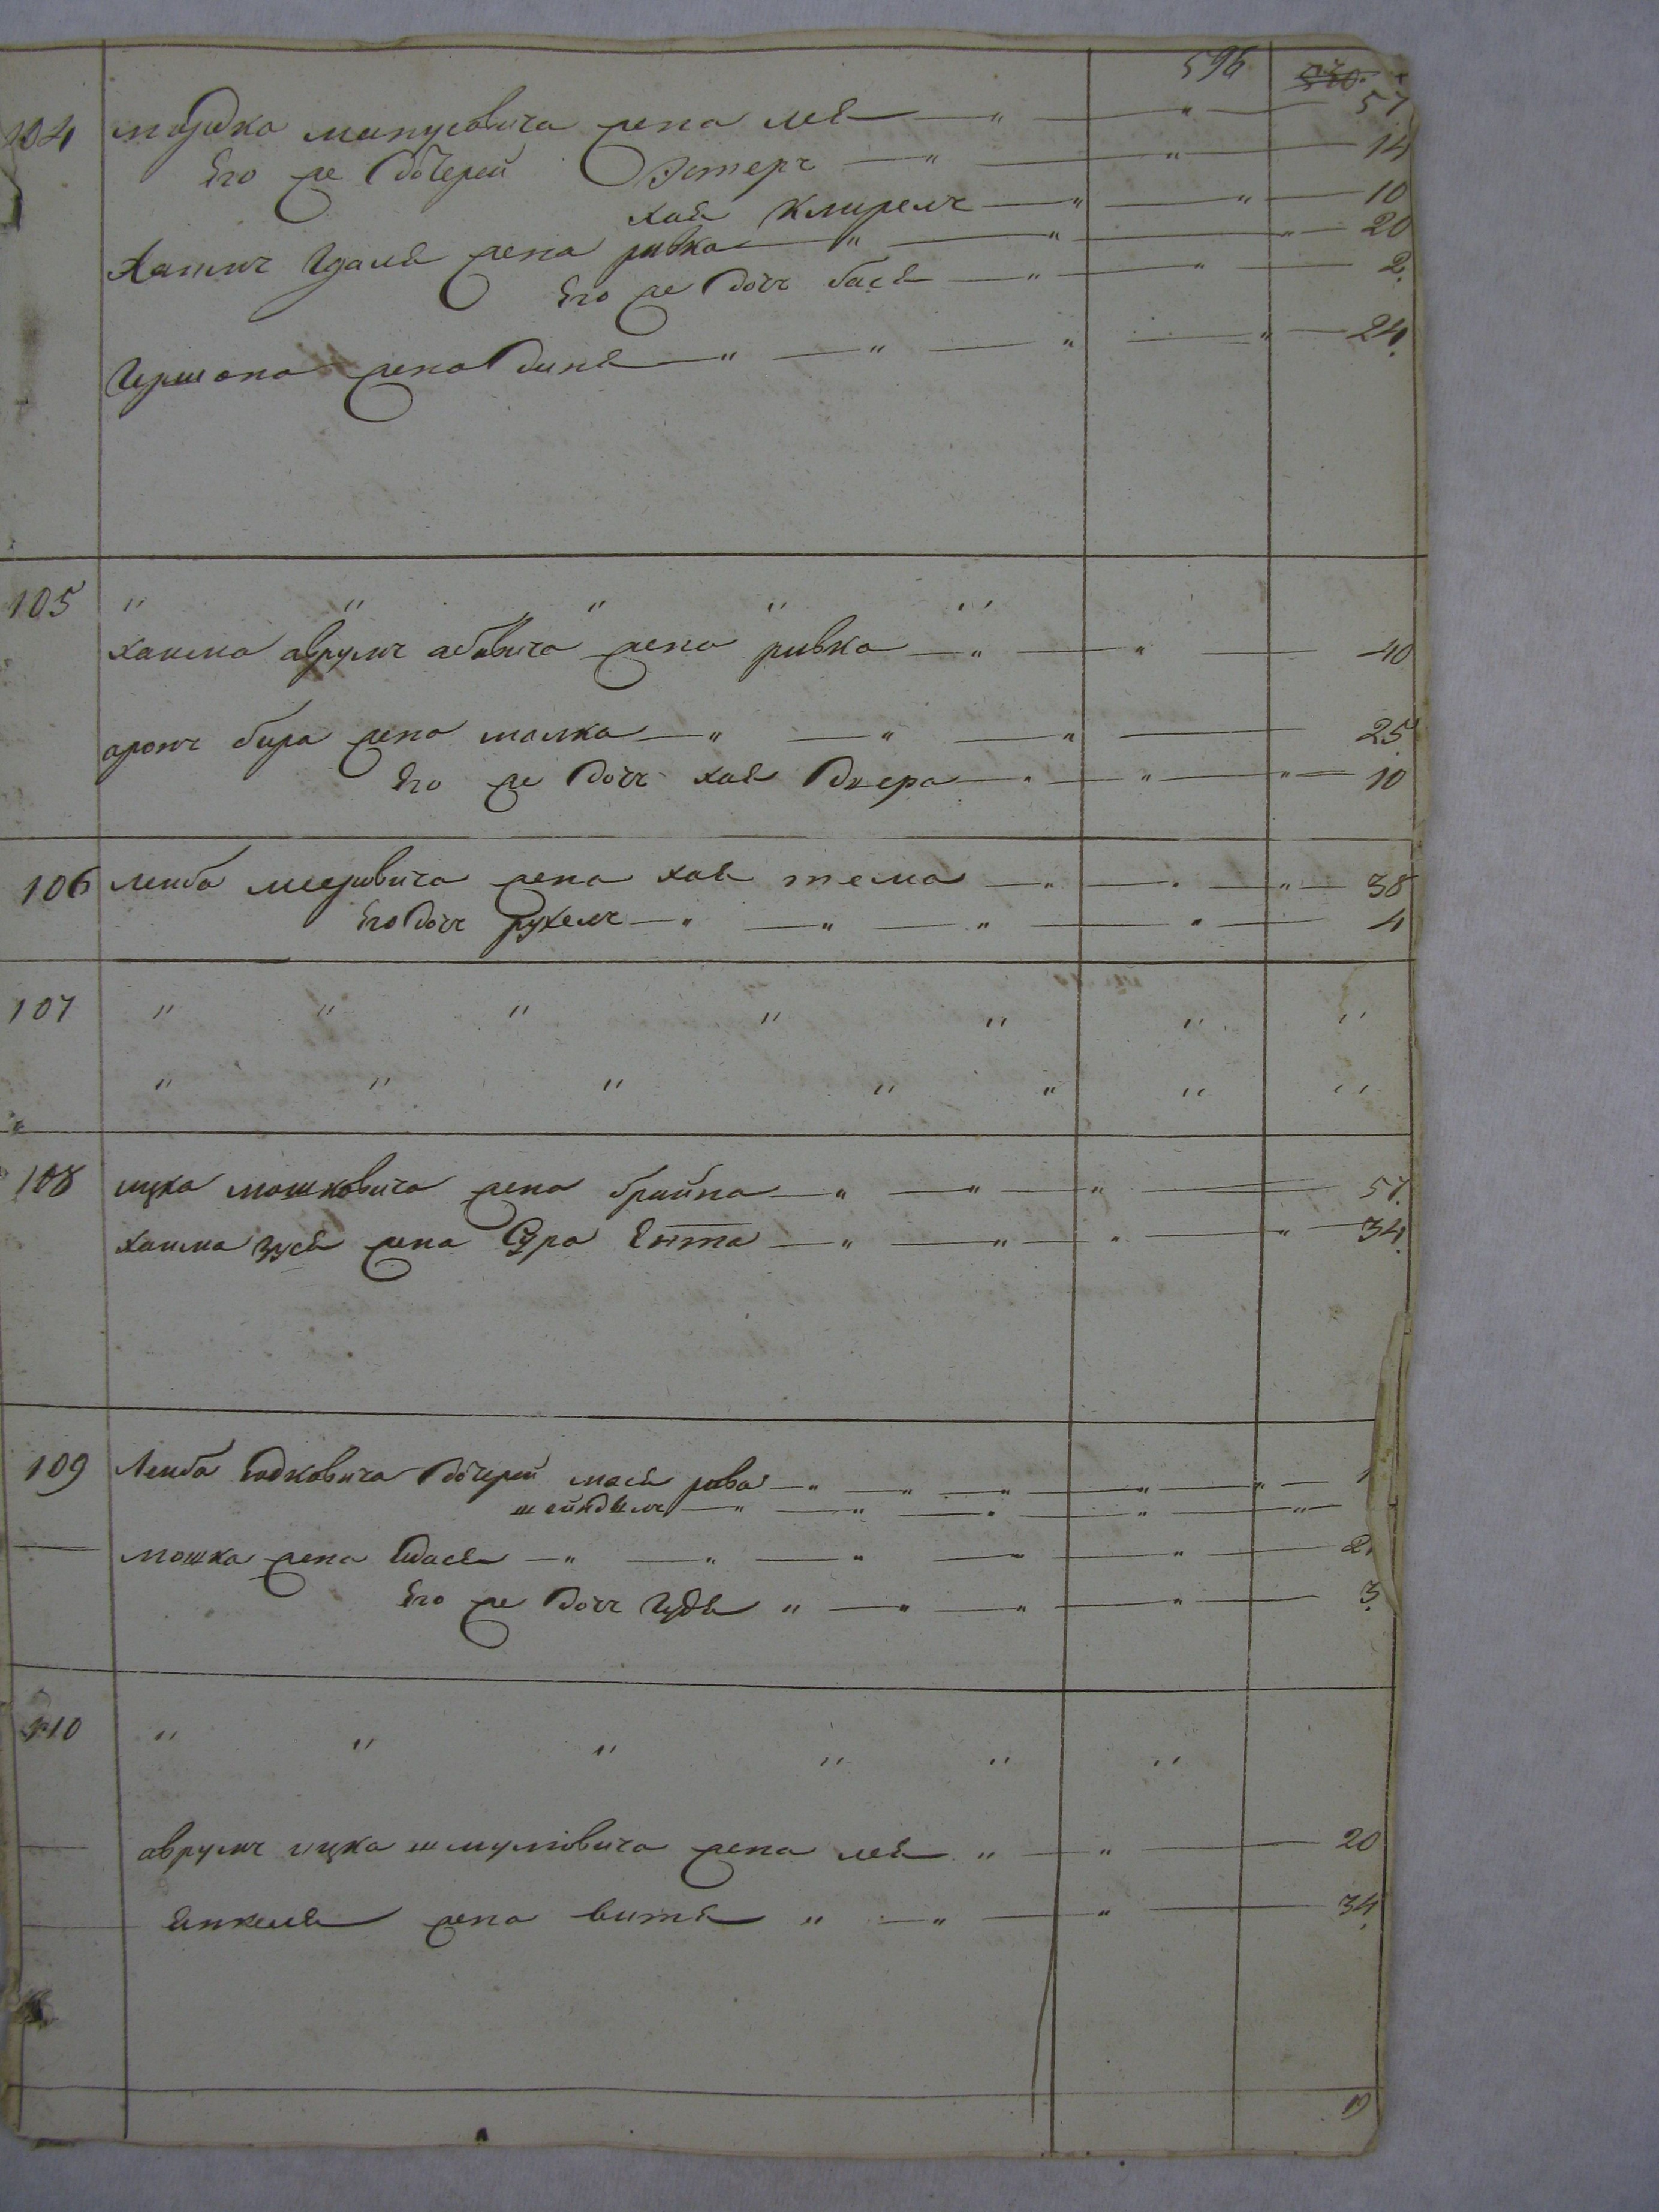 596
104 мордка манусовича жена лея — " — " — 57
Его же дочерей Эстеръ — " — " — 14
хая — " — " — 10
Хаимъ жена ривка — " — " — " — 20
Его же дочь бася — " — " — 2.
жена диня — " — " — " — " — 24.
105 " " " " "
хаима аврумъ абовича жена ривка — " — " — 40
аронъ бера жена малка — " — " — " — 25.
Его же дочь хая двера — " — " — " — 10
106 лейба мееровича жена хая тема — " — " — " — 38
Его дочь рухель — " — " — " — " — 4
107 " " " " " " "
" " " " " " "
108 ицка мошковича жена брайна — " — " — " — 57.
хаима зуся жена Сура Ента — " — " — " — " — 34.
109 Лейба дочерей мася рива — " — " — " — " — " —
шейндыль — " — " — " — " — "
мошка жена — " — " — " — " — " — 2
Его же дочь " — " — " — " — 3.
110 " " " " " "
аврумъ ицка шмулювича жена лея " — " — 20
янкеля жена витя " — " — " — 34.